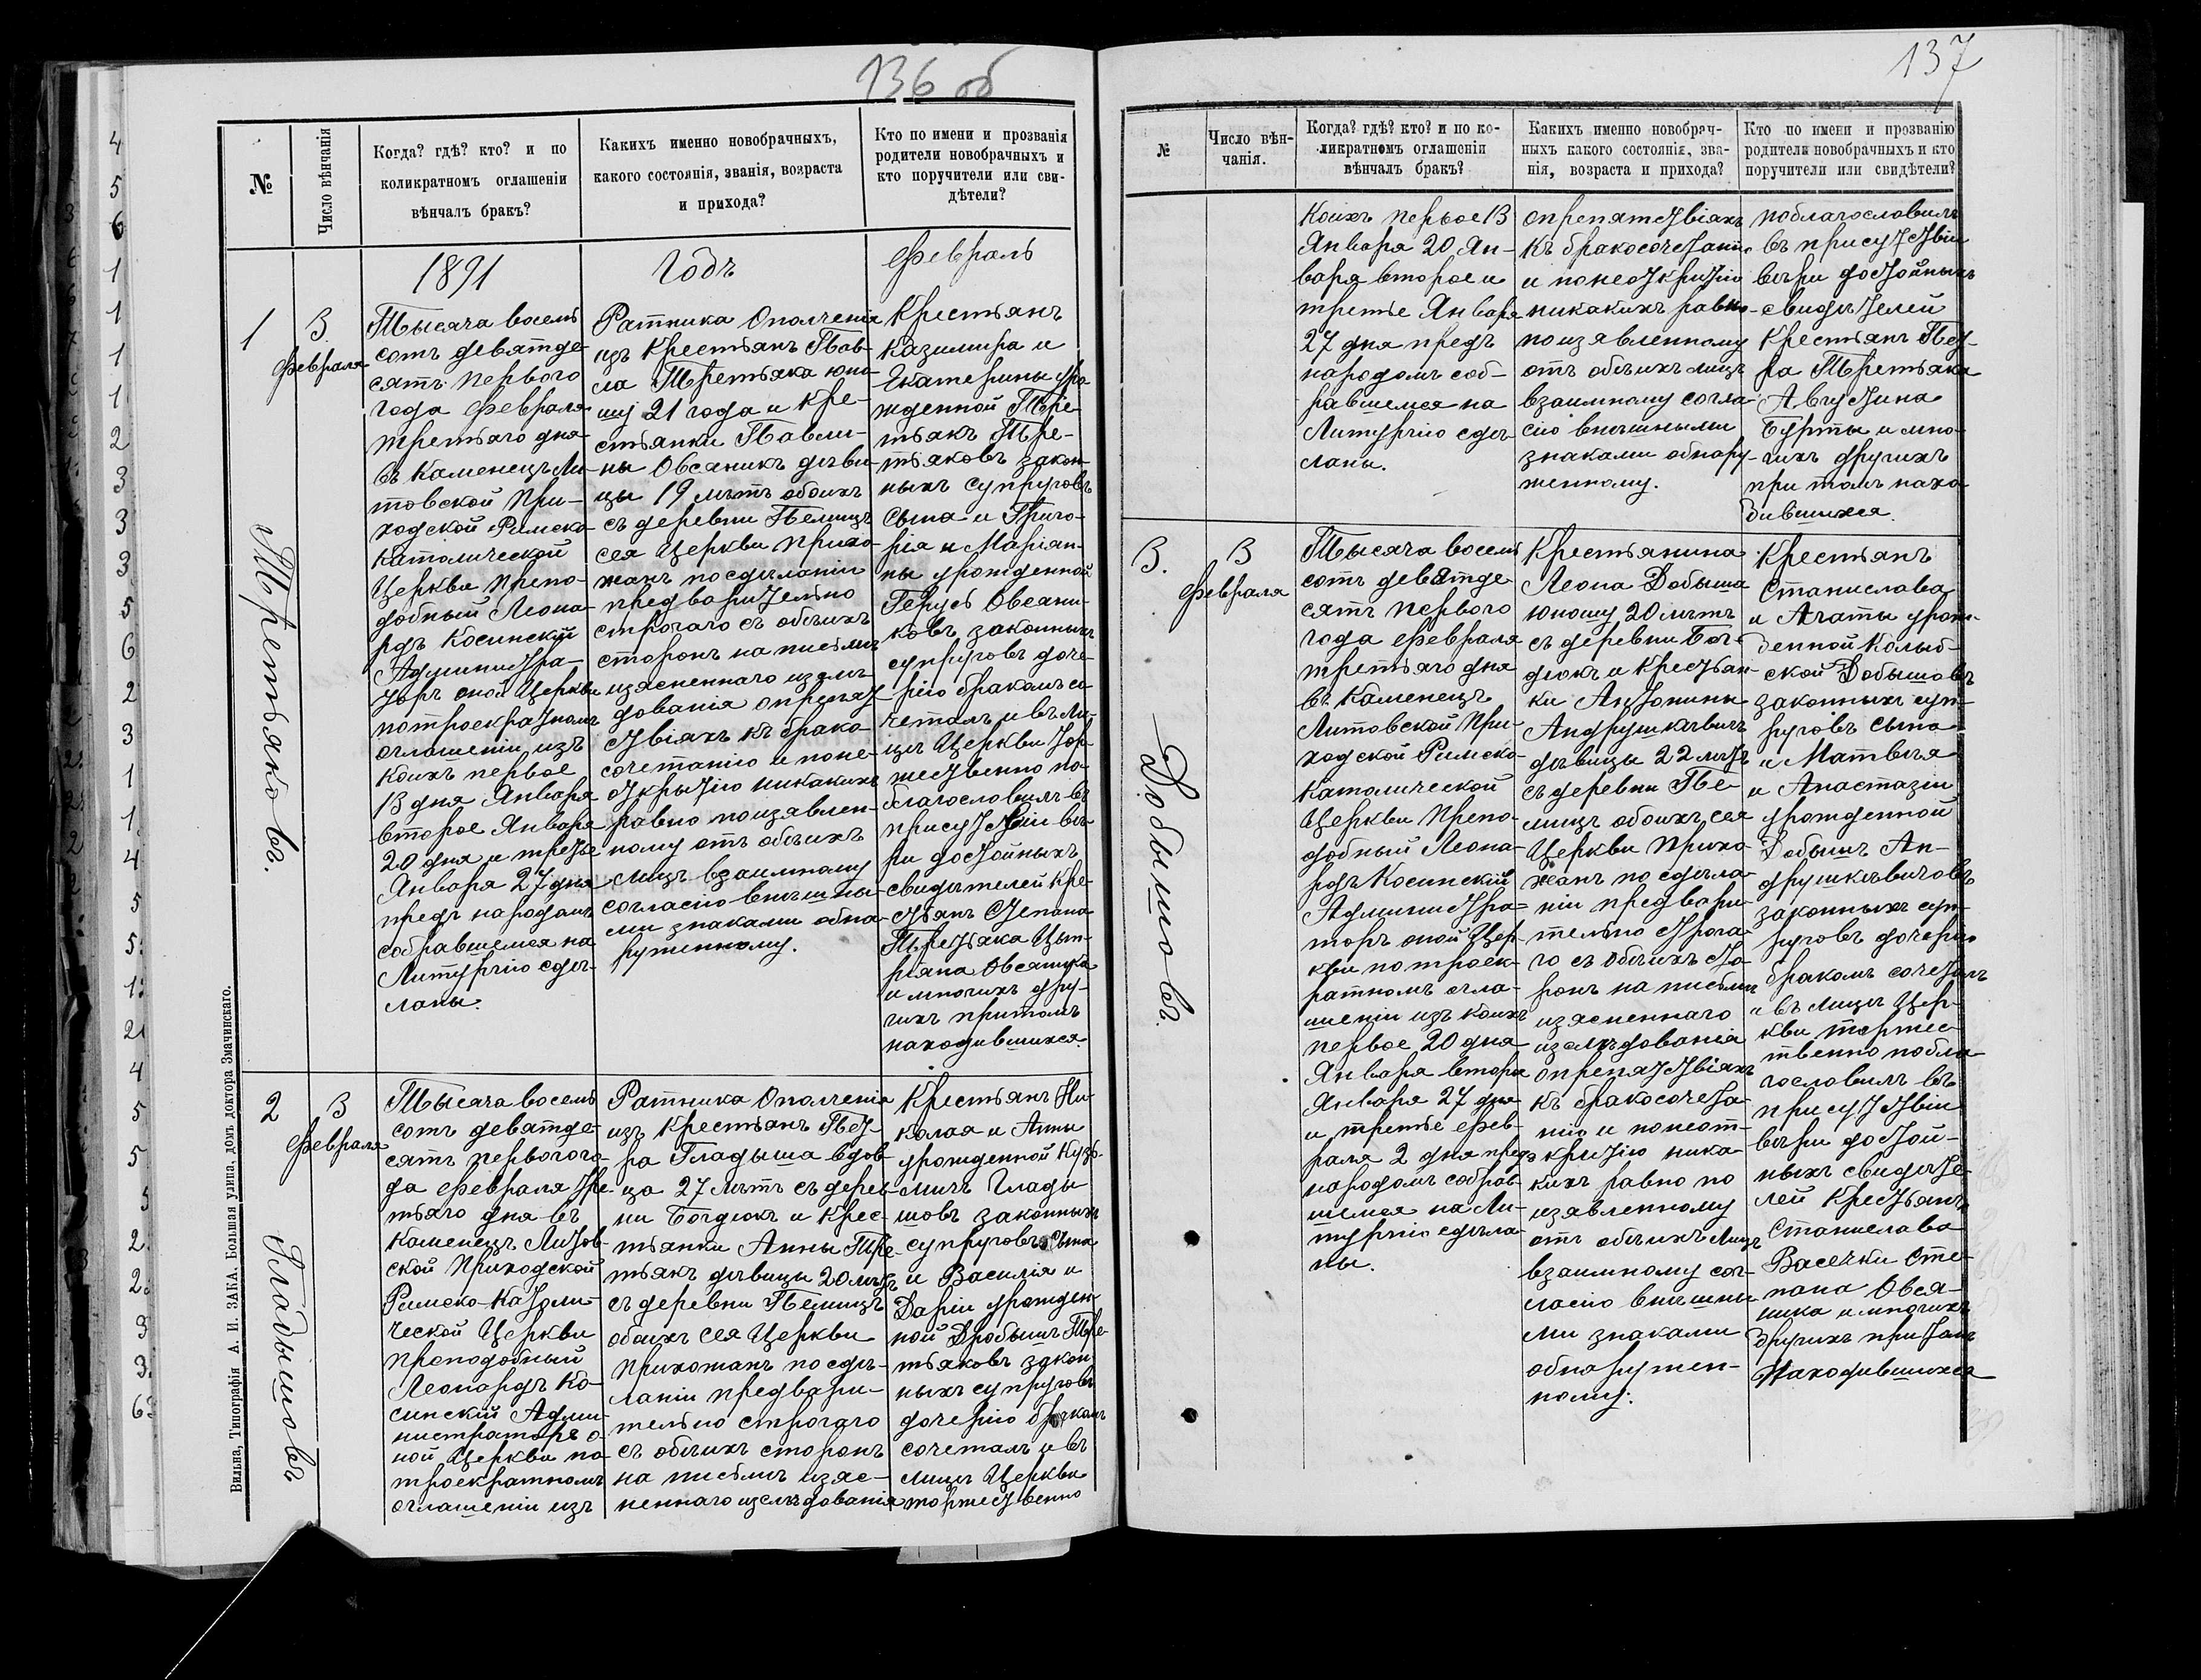 136 об
№
Число вѣнчанія
Когда? гдѣ? кто? и по
коликратномъ оглашеніи
вѣнчалъ бракъ?
Какихъ именно новобрачныхъ,
какого состоянія, званія, возраста
и прихода?
Кто по имени и прозванія
родители новобрачныхъ и
кто поручители или сви-
дѣтели?
1891
Годъ
Февраль
1
3
Февраля
Третьяковъ.
Тысяча восемь
сотъ девятде-
сятъ первого
года Февраля
третьяго дня
въ Каменецъ Ли-
товской При-
ходской Римско
Католической
Церкви Препо-
добный Леона-
рдъ Косинскій
Администра-
торъ оной Церкви
по троекратномъ
оглашеніи изъ
коихъ первое
13 дня Января
второе Января
20 дня и третье
Января 27 дня
предъ народомъ
собравшемся на
Литургію сдѣ-
ланы.
Ратника Ополченія
изъ Крестьянъ Пав-
ла Третьяка юно-
шу 21 года и кре-
стьянки Павли-
ны Овсяникъ дѣви-
цы 19 лѣтъ обоихъ
съ деревни Пелищъ
сея Церкви прихо-
жанъ по сдѣланіи
предварительно
строгаго съ обѣихъ
сторонъ на письмѣ
изясненнаго изслѣ-
дованія о препят
ствіяхъ къ брако-
сочетанію и поне-
открытію никакихъ
равно по изявлен-
ному отъ обѣихъ
лицъ взаимному
согласію внѣшны-
ми знаками обна-
руженному.
Крестьянъ
Казимира и
Екатерины уро
жденной Тре-
тьякъ Тре-
тьяковъ закон-
ныхъ супруговъ
Сына и Григо-
рія и Маріян-
ны урожденной
Герусь Овсяни-
ковъ законныхъ
супруговъ доче-
рію бракомъ со-
четалъ и въ ли-
цѣ Церкви тор-
жественно по-
благословилъ въ
присутствіи вѣ-
ры достойныхъ
свидѣтелей Кре-
стьянъ Степана
Третьяка Цып-
ріяна Овсяника
и многихъ дру-
гихъ притомъ
находившихся.
2
3
Февраля
Гладышовъ
Тысяча восемь
сотъ девятде-
сятъ первого го-
да Февраля тре-
тьяго дня въ
Каменецъ Литов-
ской Приходской
Римско-Католи-
ческой Церкви
Преподобный
Леонардъ Ко-
синскій Адми-
нистраторъ о-
ной Церкви по
троекратномъ
оглашеніи изъ
Ратника Ополченія
изъ Крестьянъ Пет-
ра Гладыша вдов-
ца 27 лѣтъ съ дерев-
ни Богдюкъ и Крес-
тьянки Анны Тре-
тьякъ дѣвицы 20 лѣтъ
съ деревни Пелищъ
обоихъ сея Церкви
Прихожанъ по сдѣ-
ланіи предвари-
тельно строгаго
съ обѣихъ сторонъ
на письмѣ изяс-
неннаго изслѣдованія
Крестьянъ Ни-
колая и Анны
урожденной Кузь-
мичъ Глады
шовъ законныхъ
супруговъ Сына
и Василія и
Даріи урожден-
ной Дробышъ Тре-
тьяковъ закон
ныхъ супруговъ
дочерію бракомъ
сочеталъ и въ
лицѣ Церкви
торжественно
Вильна, Типографія А. И. ЗАКА. Большая улица, домъ доктора Змачинскаго.
137
№
Число вѣн-
чанія.
Когда? гдѣ? кто? и по ко-
ликратномъ оглашеніи
вѣнчалъ бракъ?
Какихъ именно новобрач-
ныхъ какого состоянія, зва-
нія, возраста и прихода?
Кто по имени и прозванію
родители новобрачныхъ и кто
поручители или свидѣтели?
коихъ первое 13
Января 20 Ян-
варя второе и
третье Января
27 дня предъ
народомъ соб-
равшемся на
Литургію сдѣ-
ланы.
о препятствіяхъ
къ бракосочетанію
и понеоткрытію
никакихъ равно-
по изявленному
отъ обѣихъ лицъ
взаимному согла-
сію внѣшними
знаками обнару-
женному.
поблагословилъ
въ присутствіи
вѣры достойныхъ
свидѣтелей
Крестьянъ Пет-
ра Третьяка
Августина
Бурты и мно-
гихъ другихъ
при томъ нахо
дившихся.
3.
3
Февраля
Добышовъ.
Тысяча восемь
сотъ девятде
сятъ первого
года Февраля
третьяго дня
въ Каменецъ
Литовской При-
ходской Римско-
Католической
Церкви Препо-
добный Леона-
рдъ Косинскій
Администра-
торъ оной Цер-
кви по троек-
ратномъ огла-
шеніи изъ коихъ
первое 20 дня
Января второе
Января 27 дня
и третье Фев-
раля 2 дня предъ
народомъ собрав-
шемся на Ли-
тургію сдѣла-
ны.
Крестьянина
Леона Добыша
юношу 20 лѣтъ
съ деревни Бог-
дюкъ и Крестьян-
ки Антонины
Андрушкѣвичъ
дѣвицы 22 лѣтъ
съ деревни Пе-
лищъ обоихъ сея
Церкви Прихо
жанъ по сдѣла-
ніи предвари-
тельно строга-
го съ обѣихъ сто-
ронъ на письмѣ
изясненнаго
изслѣдованія
о препятствіяхъ
къ бракосочета-
нію и понеот-
крытію ника-
кихъ равно по
изявленному
отъ обѣихъ лицъ
взаимному сог-
ласію внѣшны
ми знаками
обнаружен-
ному.
Крестьянъ
Станислава
и Агаты урож-
денной Колыб-
ской Добышовъ
законныхъ суп-
руговъ Сына
и Матвѣя
и Анастазіи
урожденной
Добышъ Ан-
друшкѣвичовъ
законныхъ суп-
руговъ дочерію
бракомъ сочеталъ
и въ лицѣ Цер-
кви торжес-
твенно побла-
гословилъ въ
присутствіи
вѣры достой-
ныхъ свидѣте-
лей Крестьянъ
Станислава
Васечки Сте-
пана Овся-
ника и многихъ
другихъ притомъ
Находившихся